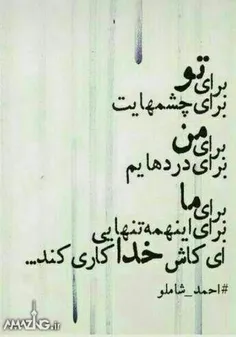 برای تو
برای چشمهایت
برای من
برای دردهایم
برای ما
برای اینهمه تنهایی
ای کاش خدا کاری کند...
#احمد_شاملو
AMAZING.ir